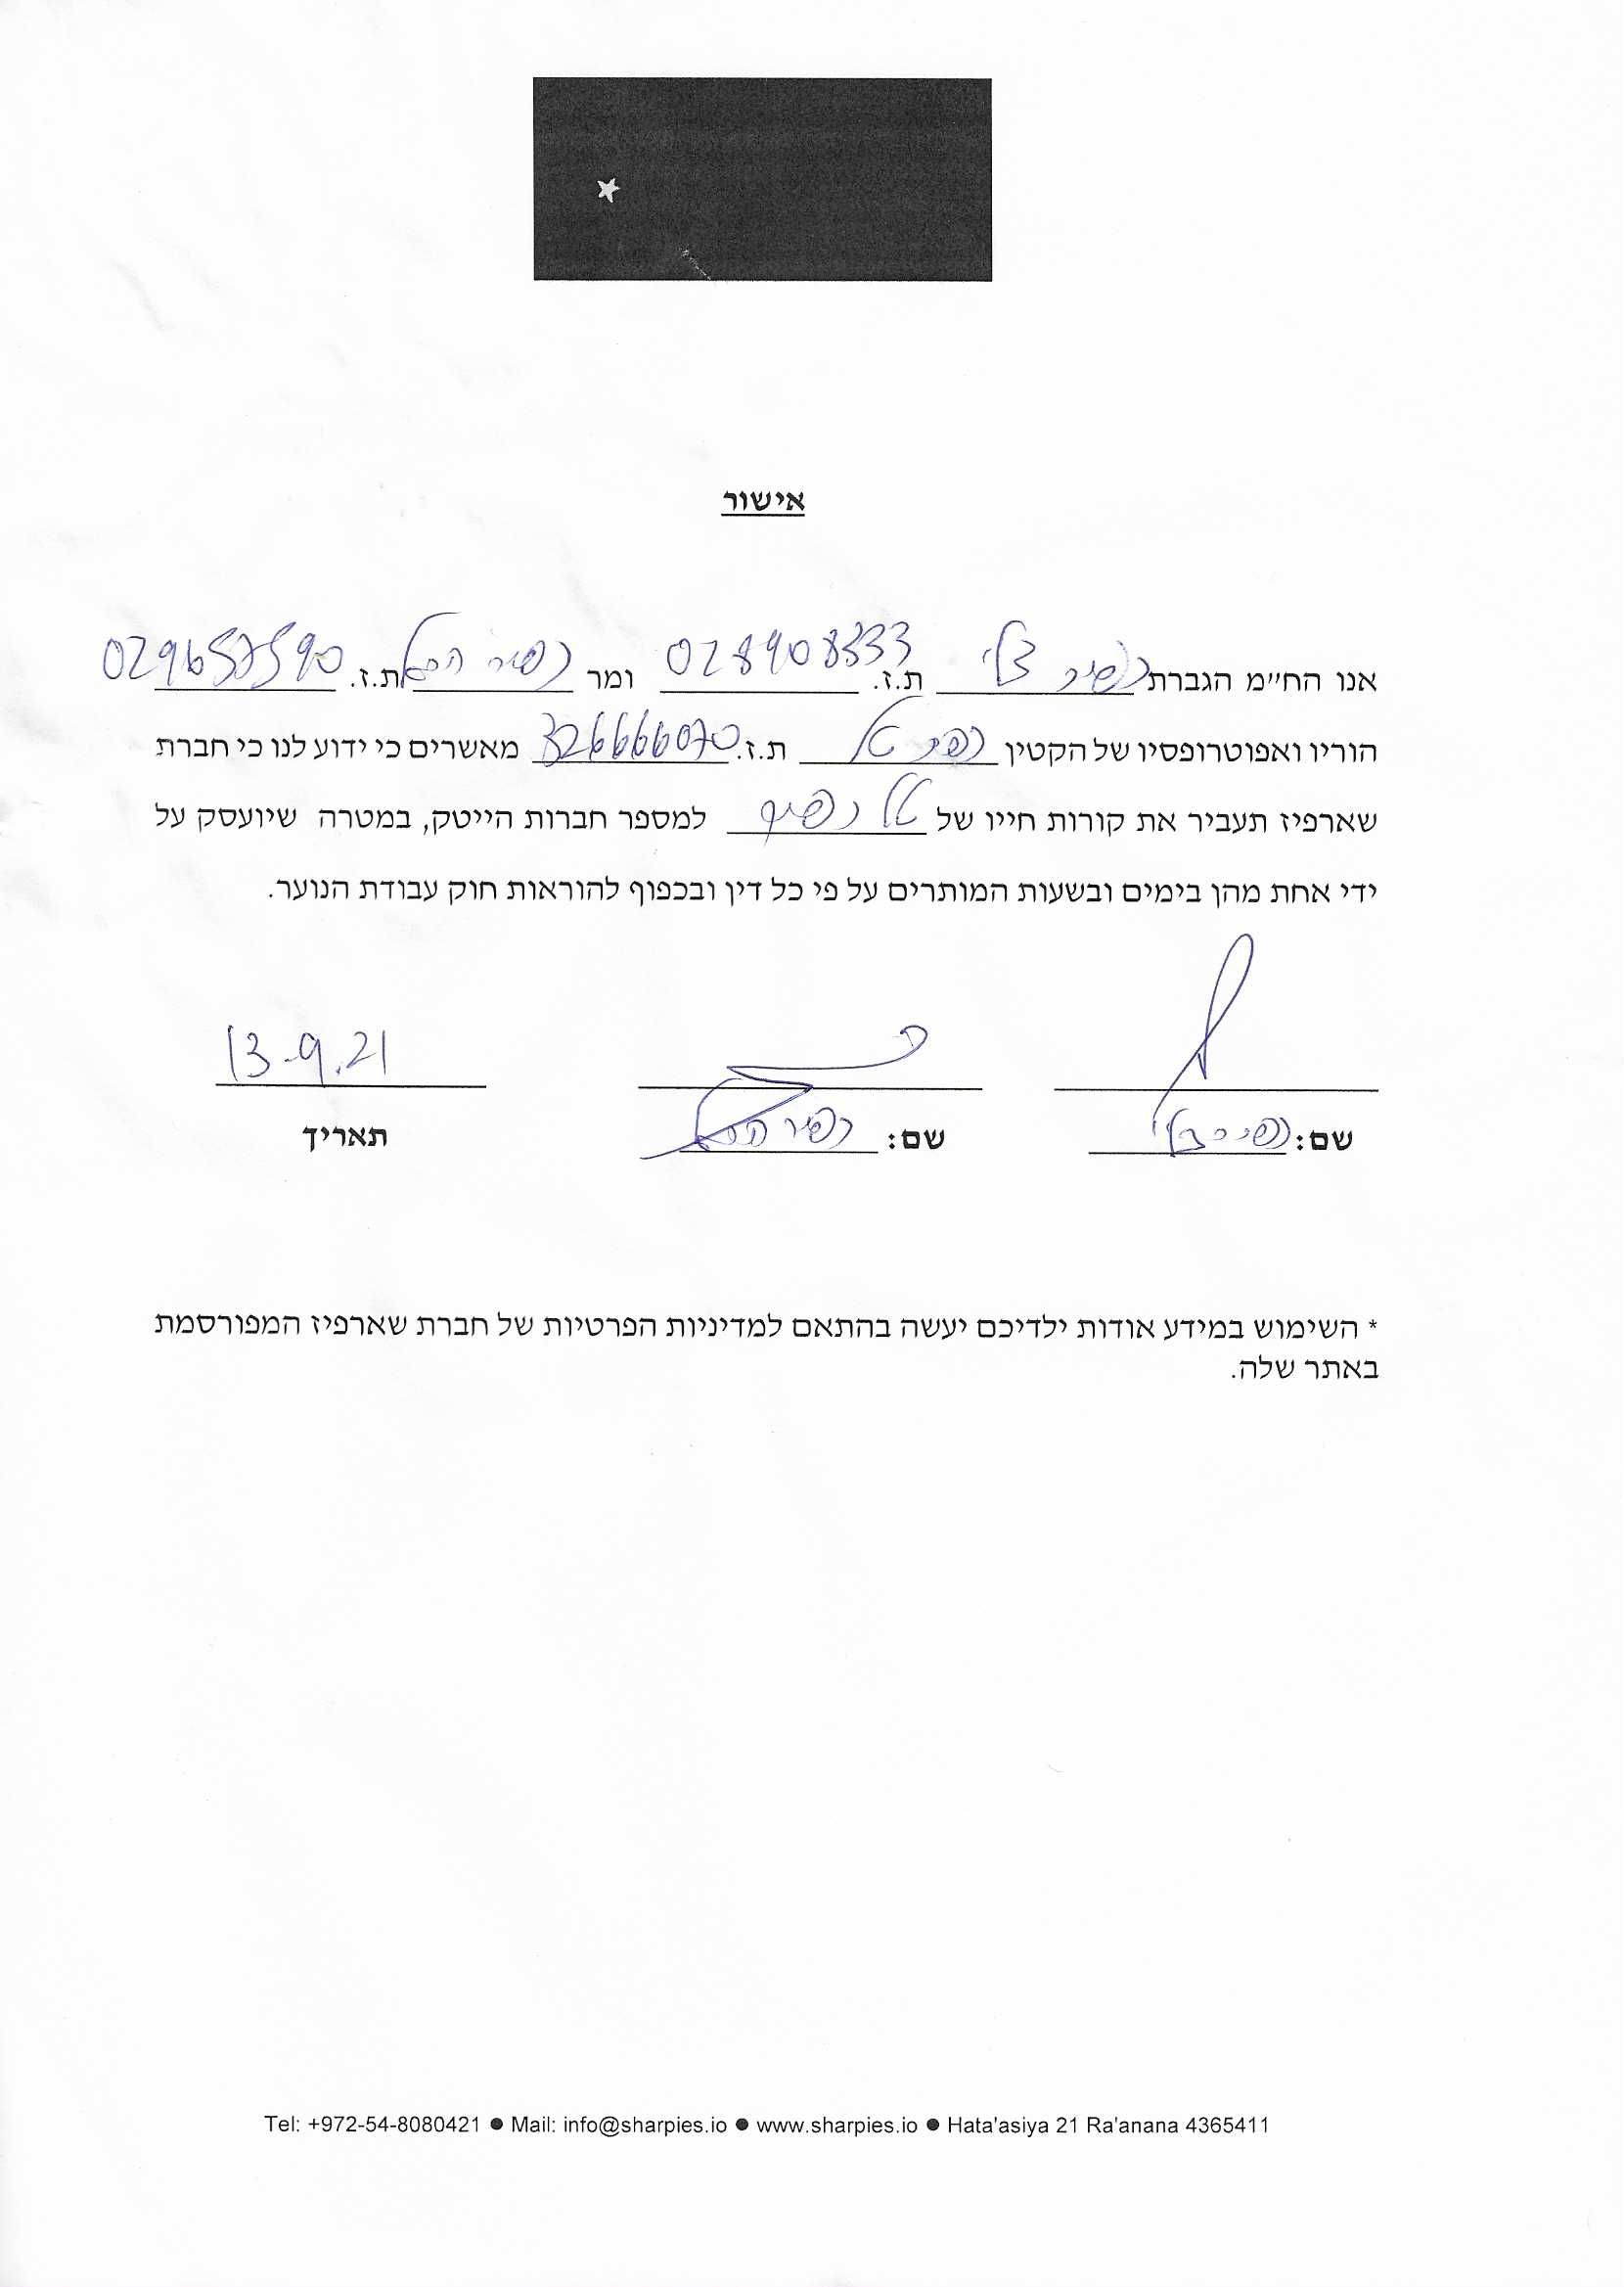 אישור
אנו הח״מ הגברת ת.ז. 028908333 ומר ת.ז. 029657590
הוריו ואפוטרופסיו של הקטין טל ת.ז. 326666070 מאשרים כי ידוע לנו כי חברת
שארפיז תעביר את קורות חייו של טל למספר חברות הייטק, במטרה שיועסק על
ידי אחת מהן בימים ובשעות המותרים על פי כל דין ובכפוף להוראות חוק עבודת הנוער.
13.9.21
שם: שם: תאריך
* השימוש במידע אודות ילדיכם יעשה בהתאם למדיניות הפרטיות של חברת שארפיז המפורסמת
באתר שלה.
Tel: +972-54-8080421 ● Mail: info@sharpies.io ● www.sharpies.io ● Hata'asiya 21 Ra'anana 4365411